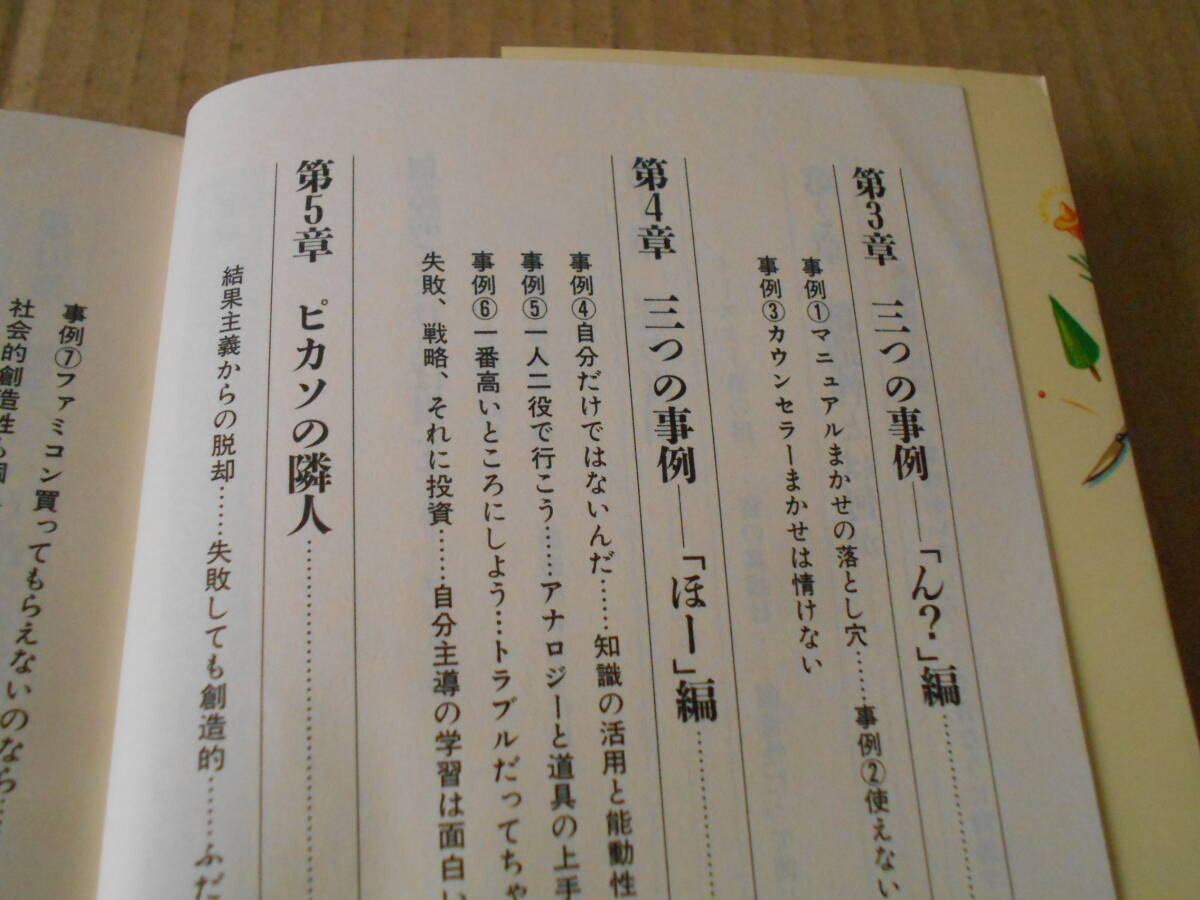 第3章 三つの事例――「ん？」編……………
事例①マニュアルまかせの落とし穴……事例②使えない
事例③カウンセラーまかせは情けない
第4章 三つの事例――「ほー」編……………
事例④自分だけではないんだ……知識の活用と能動性
事例⑤一人二役で行こう……アナロジーと道具の上手
事例⑥一番高いところにしよう…トラブルだってちゃ
失敗、戦略、それに投資……自分主導の学習は面白い
第5章 ピカソの隣人……………
結果主義からの脱却……失敗しても創造的……ふだ
事例⑦ファミコン買ってもらえないのなら……
社会的創造性も